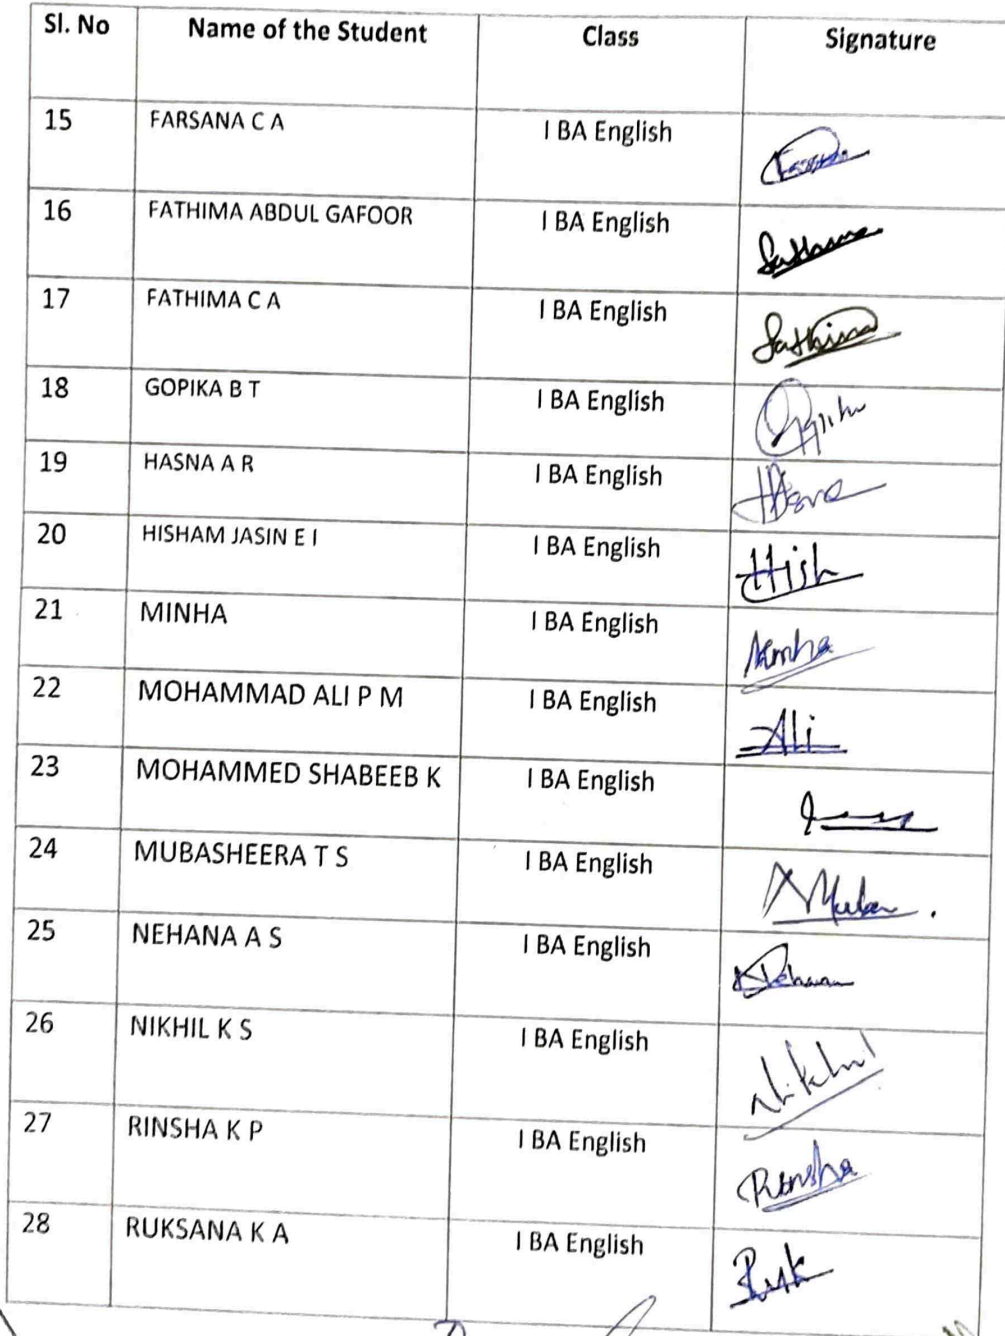 Sl. No Name of the Student Class Signature
15 FARSANA C A I BA English
16 FATHIMA ABDUL GAFOOR I BA English Fathima
17 FATHIMA C A I BA English Fathima
18 GOPIKA B T I BA English
19 HASNA A R I BA English Hasna
20 HISHAM JASIN E I I BA English Hish
21 MINHA I BA English
22 MOHAMMAD ALI P M I BA English Ali
23 MOHAMMED SHABEEB K I BA English
24 MUBASHEERA T S I BA English
25 NEHANA A S I BA English
26 NIKHIL K S I BA English Nikhil
27 RINSHA K P I BA English Rinsha
28 RUKSANA K A I BA English Ruk